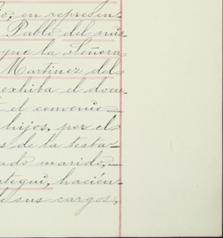 to, en represen-
Pablo del mis-
que la Señora
Martinez del
exhiba el docu-
el convenio
hijos, por el
s de la testa-
ado marido,
ategui, hacien-
e sus cargos,